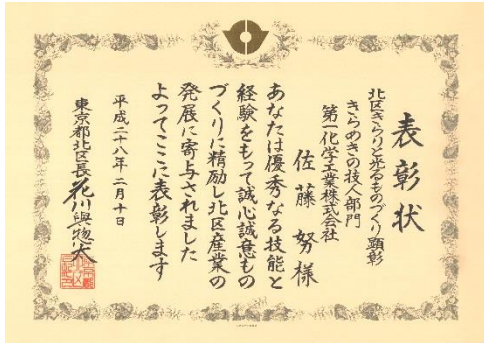 表彰状
北区きらりと光るものづくり顕彰
きらめきの技人部門
第一化学工業株式会社
佐藤努様
あなたは優秀なる技能と
経験をもって誠心誠意もの
づくりに精励し北区産業の
発展に寄与されました
よってここに表彰します
平成二十八年二月十日
東京都北区長 花川與惣太